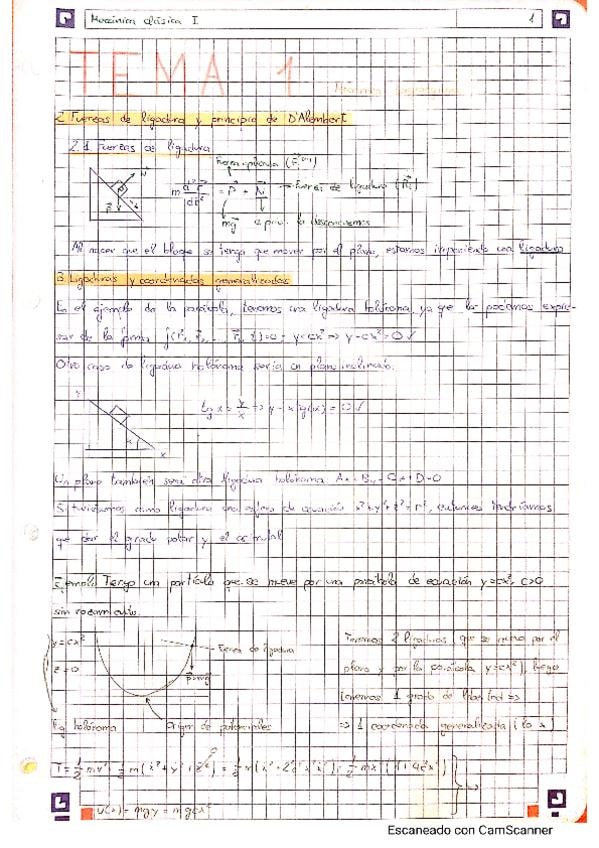 Mecánica clásica I 1
TEMA 1
2 Fuerzas de ligadura y principio de D'Alembert
2.1. Fuerzas de ligadura
Fuerza aplicada
m d²r/dt² = P + N → Fuerza de ligadura
mg a priori la desconocemos
Al hacer que el bloque se tenga que mover por el plano, estamos imponiendo una ligadura
3 Ligaduras y coordenadas generalizadas
En el ejemplo de la parábola, tenemos una ligadura holónoma, ya que la podemos expre-
sar de la forma f(r₁, r₂, ... t)=0: y=cx² ⇒ y-cx²=0 ✓
Otro caso de ligadura holónoma sería un plano inclinado.
y
x
Un plano también será una ligadura holónoma Ax+By+Cz+D=0
Si tuviéramos como ligadura una esfera de ecuación x²+y²+z²=r², entonces tendríamos
que dar el grado polar y el acimutal
Ejemplo Tengo una partícula que se mueve por una parábola de ecuación y=cx², c>0
sin rozamiento.
y=cx²
z=0
Fuerza de ligadura
P=mg
Eq holónoma
Origen de potenciales
Tenemos 2 ligaduras, que se mueva por el
plano y por la parábola (y=cx²), luego
tenemos 1 grado de libertad ⇒
⇒ 1 coordenada generalizada (la x)
U(x)=mgy=mgcx²
Escaneado con CamScanner